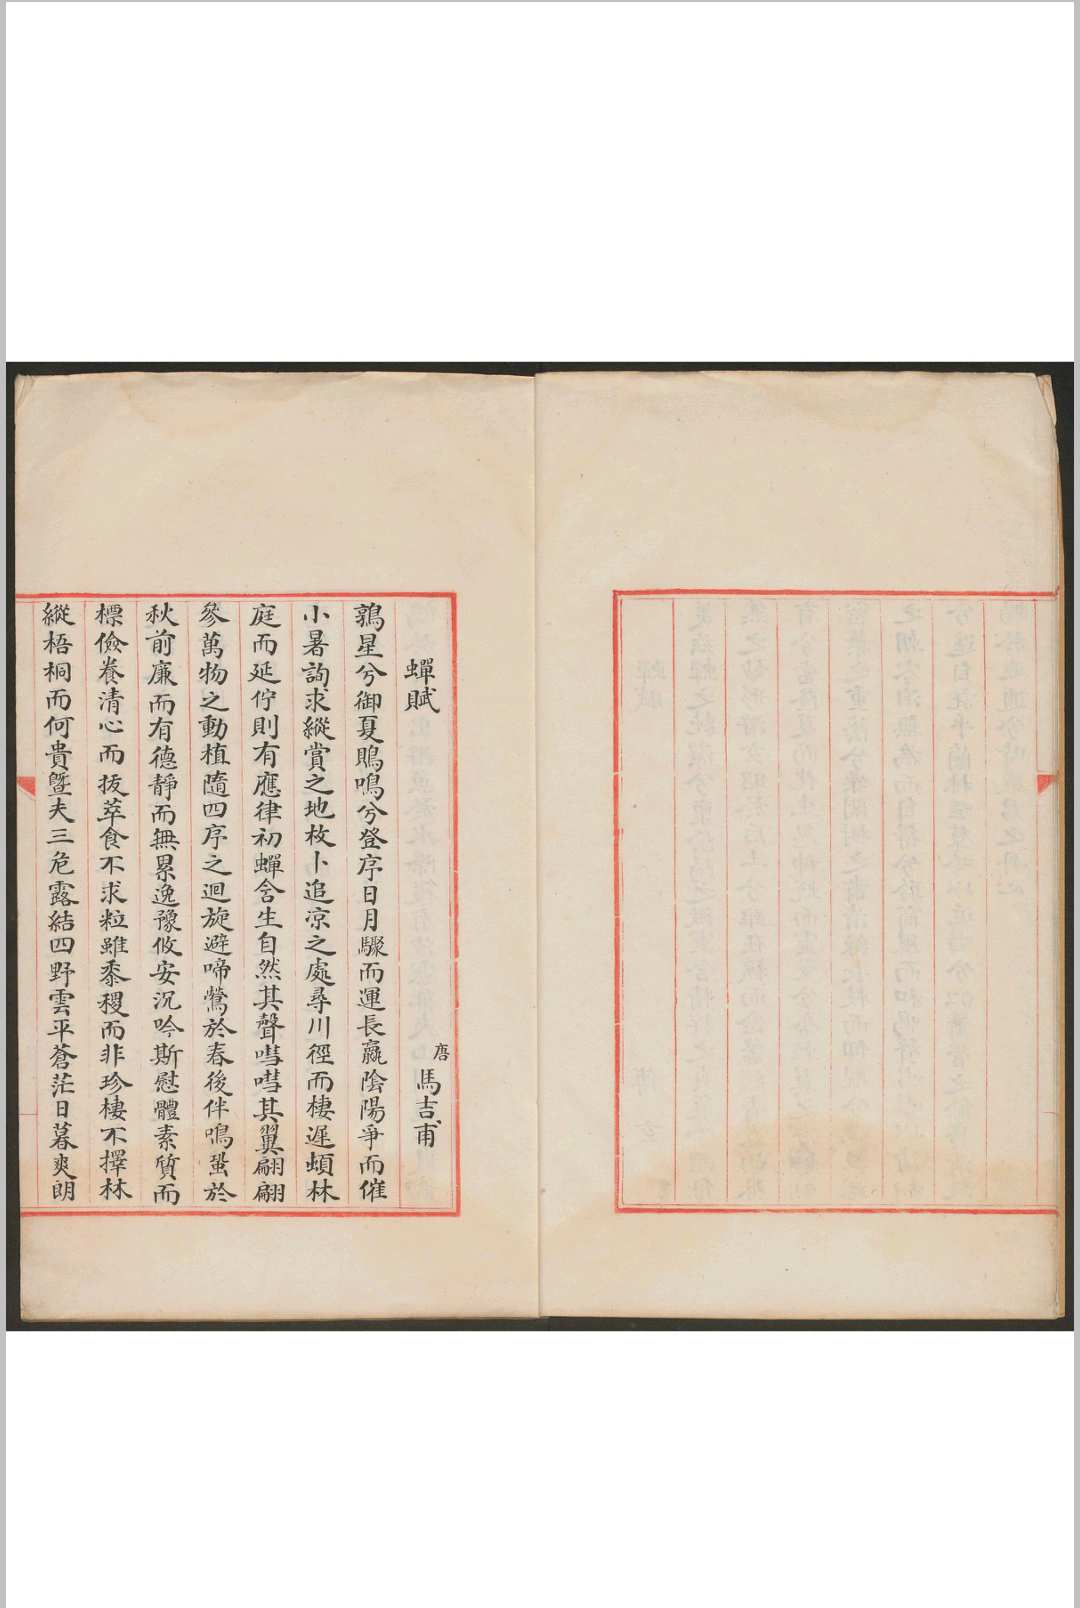 蟬賦
唐 馬吉甫
鶉星兮御夏鵙鳴兮登序日月驟而運長羸陰陽爭而催
小暑詢求縱賞之地枚卜追凉之處尋川徑而棲遲頫林
庭而延佇則有應律初蟬含生自然其聲嘒嘒其翼翩翩
參萬物之動植隨四序之迴旋避啼鶯於春後伴鳴蛩於
秋前廉而有德靜而無累逸豫攸安沉吟斯慰體素質而
標儉養清心而拔萃食不求粒雖黍稷而非珍棲不擇林
縱梧桐而何貴曁夫三危露結四野雲平蒼茫日暮爽朗